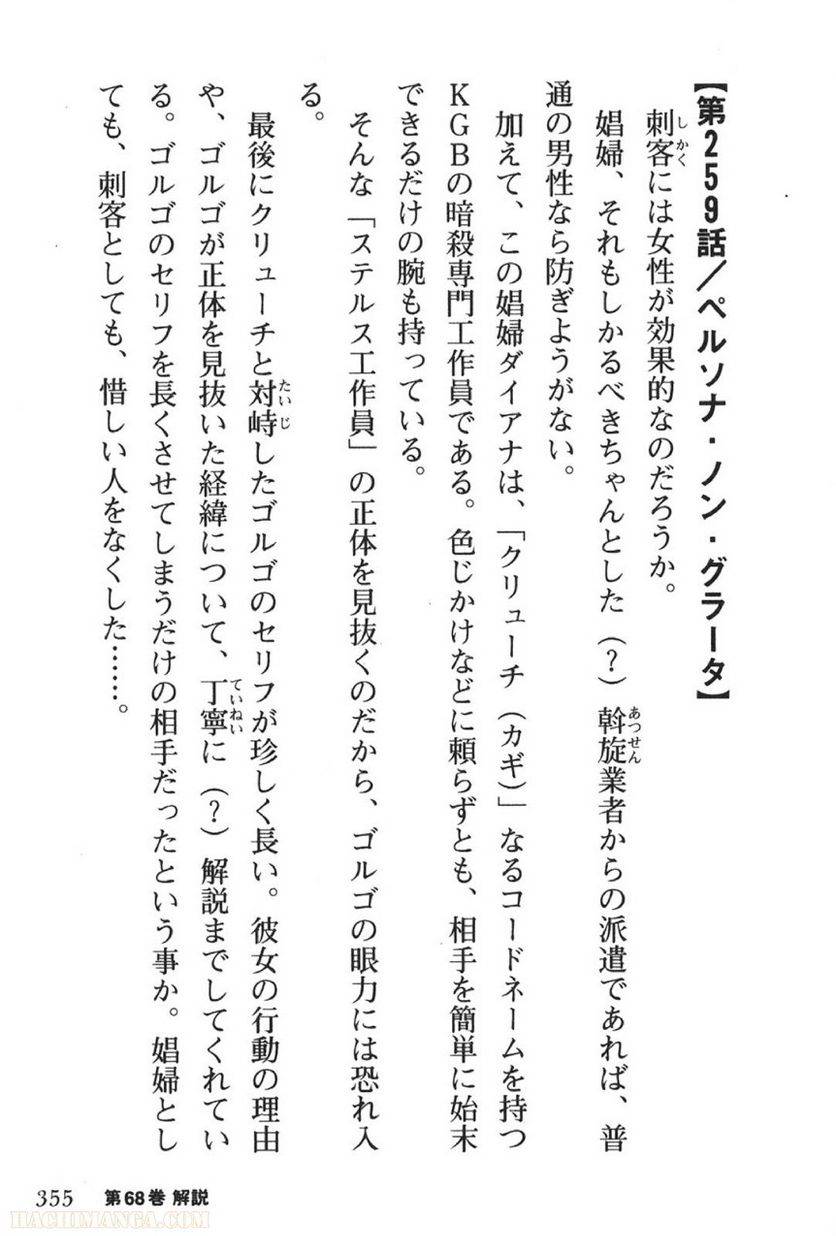 【第259話／ペルソナ・ノン・グラータ】
刺客には女性が効果的なのだろうか。
娼婦、それもしかるべきちゃんとした（？）斡旋業者からの派遣であれば、普
通の男性なら防ぎようがない。
加えて、この娼婦ダイアナは、「クリューチ（カギ）」なるコードネームを持つ
KGBの暗殺専門工作員である。色じかけなどに頼らずとも、相手を簡単に始末
できるだけの腕も持っている。
そんな「ステルス工作員」の正体を見抜くのだから、ゴルゴの眼力には恐れ入
る。
最後にクリューチと対峙したゴルゴのセリフが珍しく長い。彼女の行動の理由
や、ゴルゴが正体を見抜いた経緯について、丁寧に（？）解説までしてくれてい
る。ゴルゴのセリフを長くさせてしまうだけの相手だったという事か。娼婦とし
ても、刺客としても、惜しい人をなくした……。
355 第68巻 解説
HACHIMANGA.COM